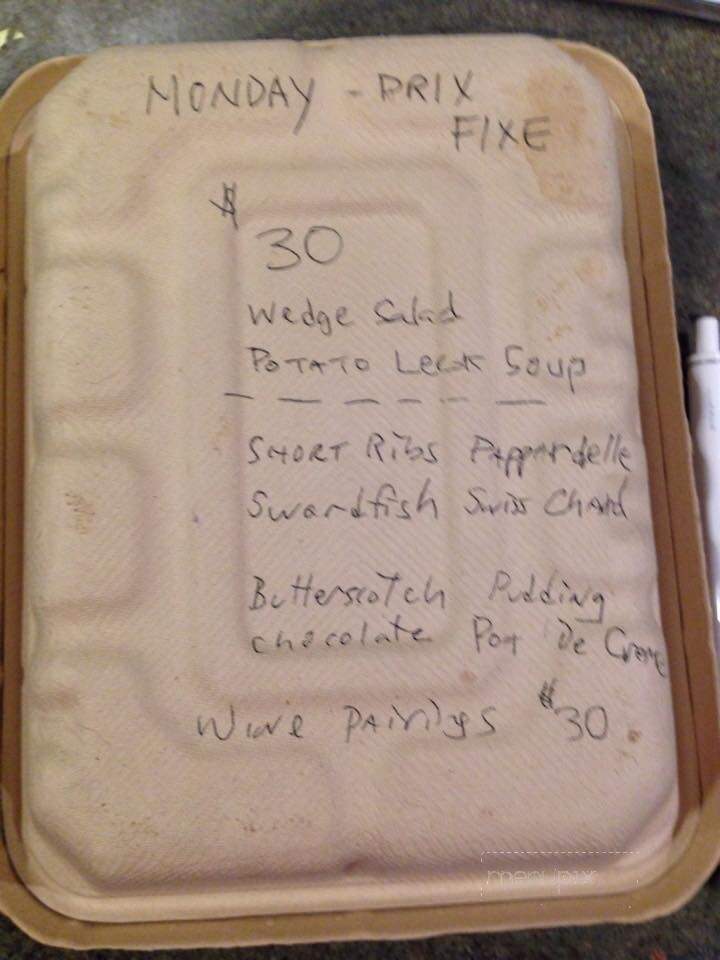 MONDAY - PRIX
FIXE
$
30
Wedge Salad
POTATO Leek Soup
SHORT Ribs Pappardelle
Swordfish Swiss Chard
Butterscotch Pudding
chocolate Pot De Creme
Wine pairings $30
menupix